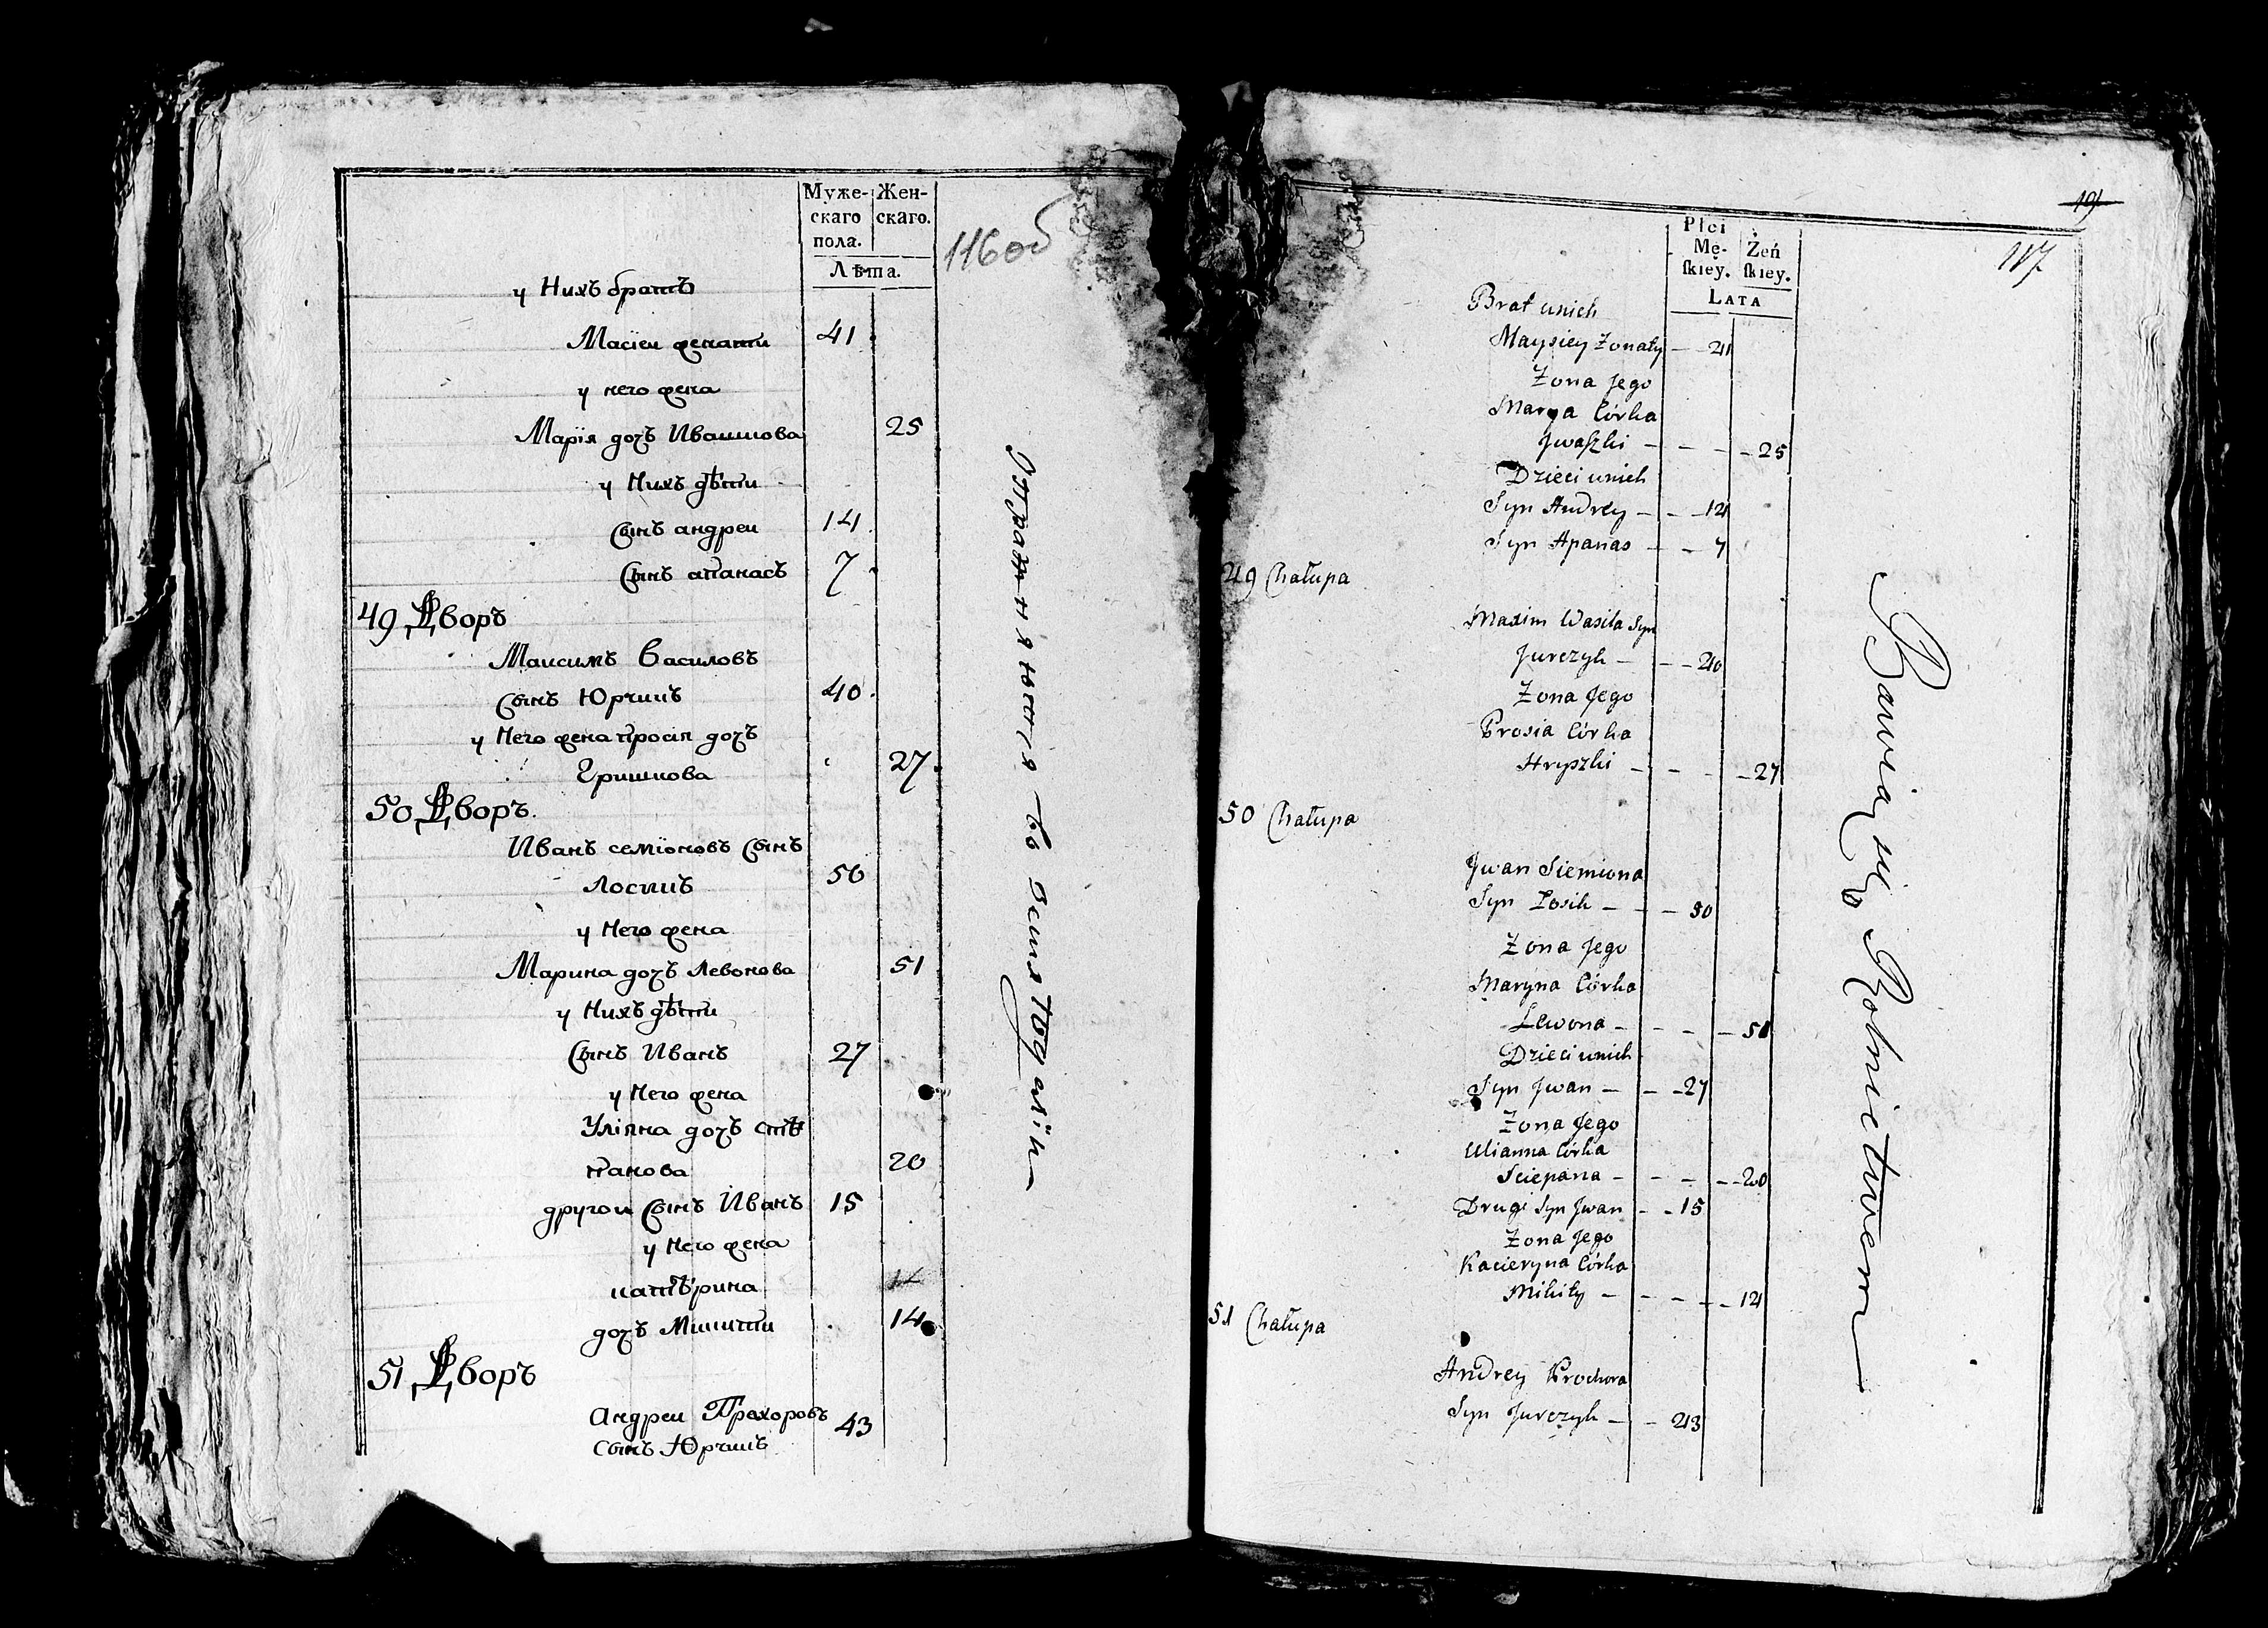 Муже-
скаго
пола.
Жен-
скаго.
Лѣта.
116об
у Нихъ братъ
Масіеи женати 41
у него жена
Марія дочь Ивашкова 25
у Нихъ дѣти
Сынъ андреи 14
Сынъ апанасъ 7
49 Дворъ
Максимъ Василовъ
Сынъ Юрчикъ 40
у Него жена просія дочь
Гришкова 27
50 Дворъ.
Иванъ семіоновъ Сынъ
Лосикъ 50
у Него жена
Марина дочь Левонова 51
у Нихъ дѣти
Сынъ Иванъ 27
у Него жена
Уліяна дочь стѣ
панова 20
другои Сынъ Иванъ 15
у Него жена
катѣрина
дочь Микити 14
51 Дворъ
Андреи Прохоровъ 43
сынъ Юрчикъ
Упражняются въ Земледѣліи
Płci
Mę-
skiey.
Żeń
skiey.
LATA
117
Brat unich
Maysiey Żonaty 41
Żona Jego
Marya Córka
Jwaszki 25
Dzieci unich
Syn Andrey 14
Syn Apanas 7
49 Chałupa
Maxim Wasila Syn
Jurczyk 40
Żona Jego
Prosia Córka
Hryszki 27
50 Chałupa
Jwan Siemiona
Syn Łosik 50
Żona Jego
Maryna Córka
Lewona 51
Dzieci unich
Syn Jwan 27
Żona Jego
Ulianna Córka
Sciepana 20
Drugi Syn Jwan 15
Żona Jego
Kacieryna Córka
Mikity 14
51 Chałupa
Andrey Prochora
Syn Jurczyk 43
Bawią się Rolnictwem